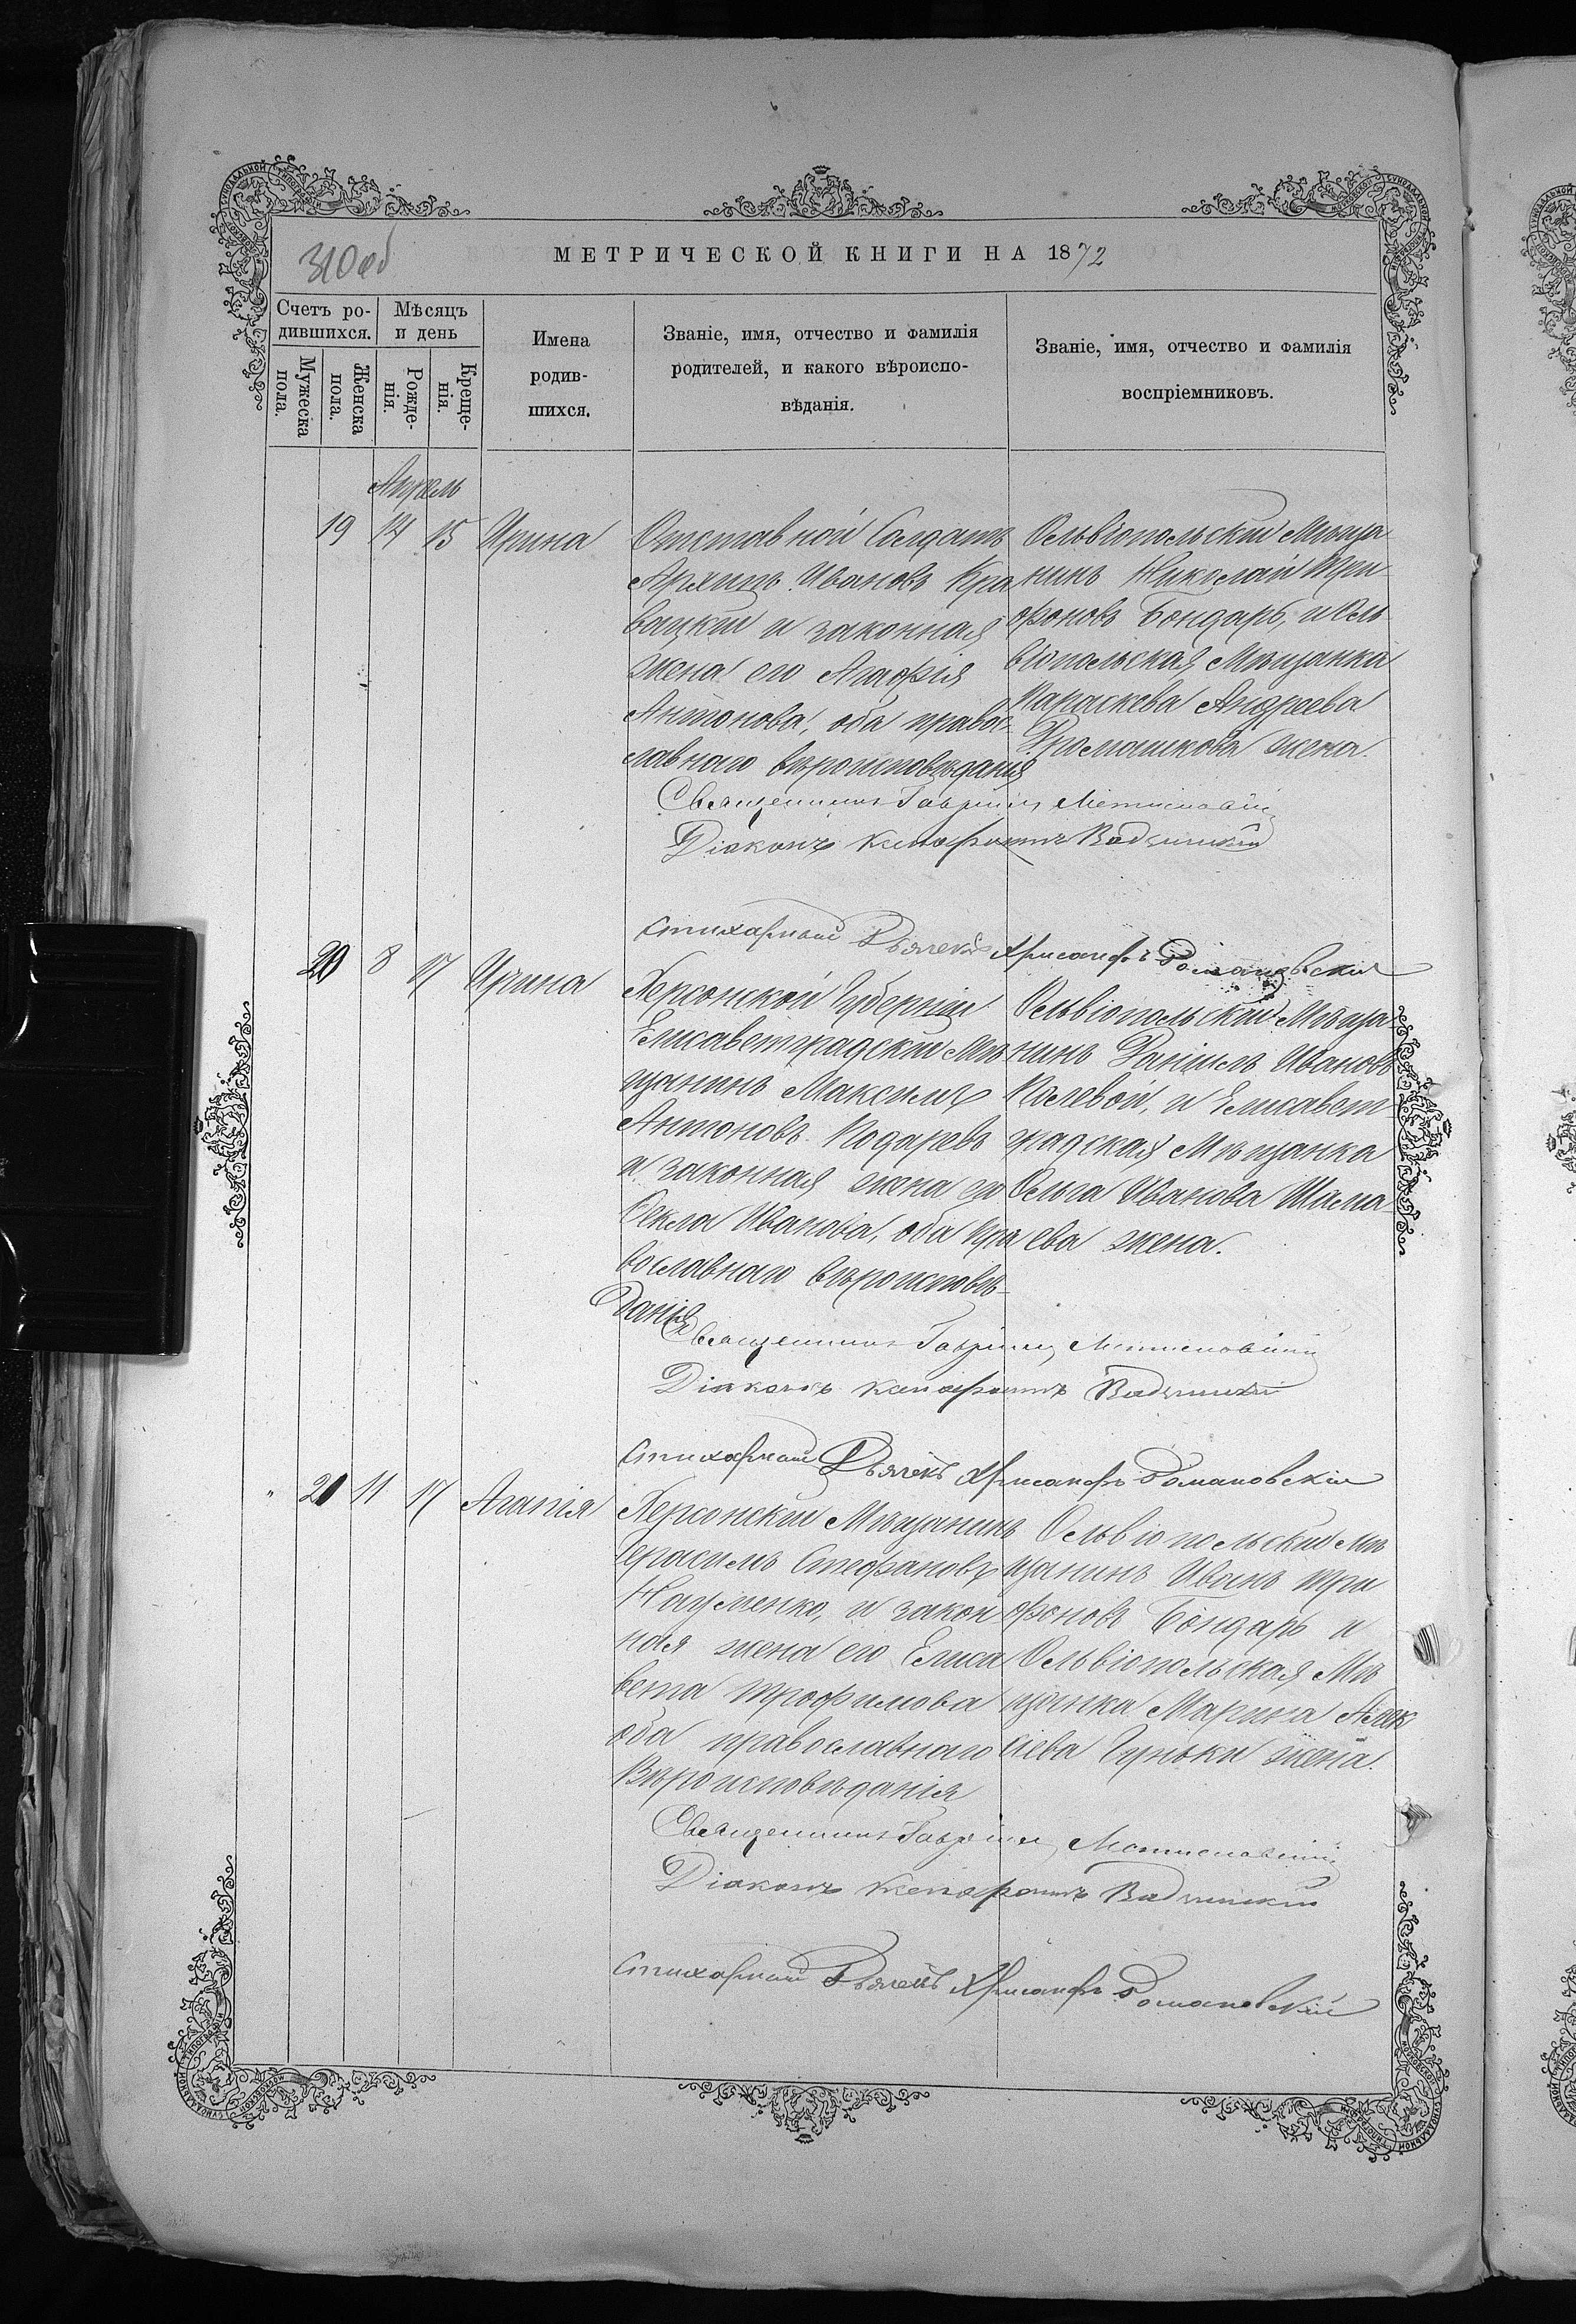 310 об
МЕТРИЧЕСКОЙ КНИГИ НА 1872
Счетъ ро-
дившихся.
Мѣсяцъ
и день
Мужеска
пола.
Женска
пола.
Рожде-
нія.
Креще-
нія.
Имена
родив-
шихся.
Званіе, имя, отчество и фамилія
родителей, и какого вѣроиспо-
вѣданія.
Званіе, имя, отчество и фамилія
воспріемниковъ.
Апрѣль
19 14 15 Ирина
Отставной Солдатъ
Архипъ Ивановъ Кра
вацкій и законная
жена его Агафія
Антонова, оба правос-
лавнаго вѣроисповѣданія
Ольвіопольскій Мѣща
нинъ Николай Три
фоновъ Бондарь, и Оль
віопольская Мѣщанка
Параскева Андреева
жена.
Священникъ Гавріилъ
Діаконъ Ксенофонтъ
Стихарный Дьячекъ Хрисанфъ Романовскій
20 8 17 Ирина
Херсонской Губерніи
Елисаветградскій Мѣ
щанинъ Максимъ
Антоновъ
и законная жена его
Оекла Иванова, оба пра
вославнаго вѣроисповѣ-
данія
Ольвіопольскій Мѣща-
нинъ Даніилъ Ивановъ
Полевой, и Елисавет
градская Мѣщанка
Ольга Иванова Шама
ева жена.
Священникъ Гавріилъ
Діаконъ Ксенофонтъ
Стихарный Дьячекъ Хрисанфъ Романовскій
21 11 17 Агапія
Херсонскій Мѣщанинъ
Герасимъ Стефановъ
Науменко, и закон
ная жена его Елиса
вета Трофимова
оба православнаго
Вѣроисповѣданія
Ольвіопольскій Мѣ
щанинъ Иванъ Три
фоновъ Бондарь и
Ольвіопольская Мѣ
щанка Марина Алек
сіева жена.
Священникъ Гавріилъ
Діаконъ Ксенофонтъ
Стихарный Дьячекъ Хрисанфъ Романовскій